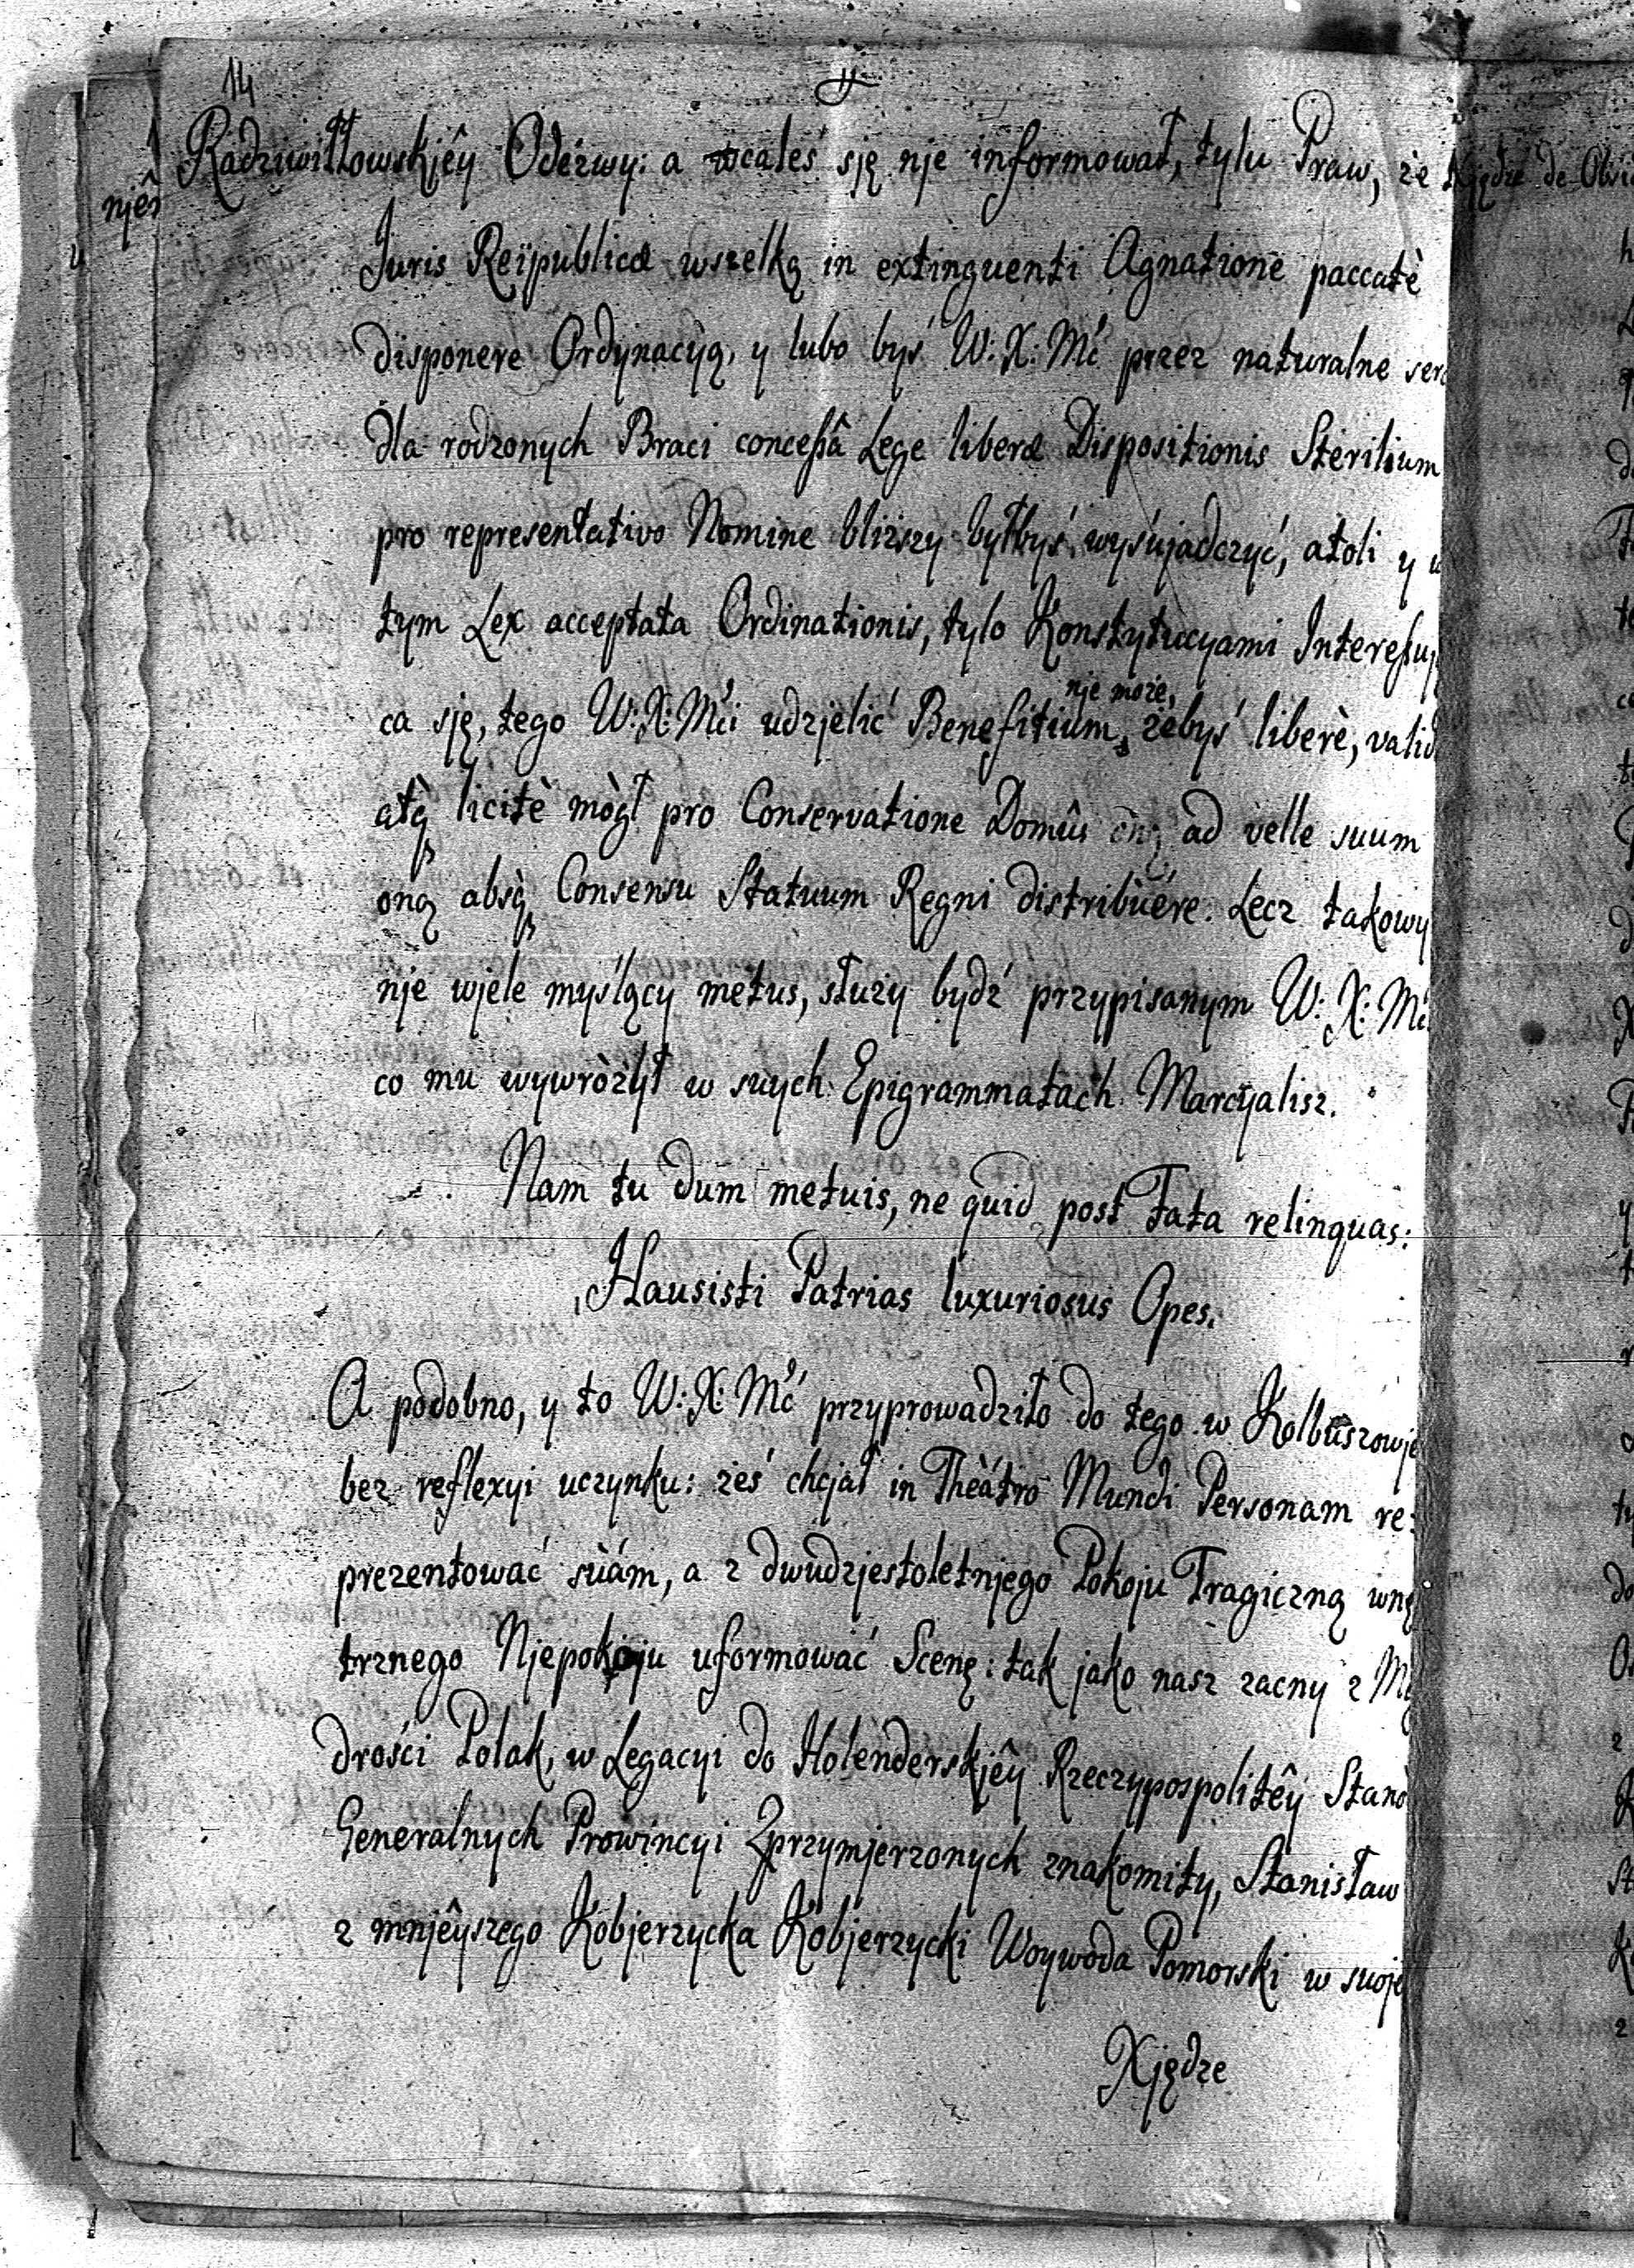 14
Radziwiłłowskjêy Odezwy: a wcaleś sję nje informował, tylu Praw, że
njêy
Juris Reipublicæ wszelką in extinguenti Agnatione paccatè
disponere Ordynacyą, y lubo byś W: X: Mć przez naturalne
dla rodzonych Braci conceſsâ Lege liberæ Dispositionis Sterilium
pro representativo Nomine bliższy byłbyś wyśẃjadczyć, atoli y w
tym Lex acceptata Ordinationis, tylo Konstytucyami Intereſsuj
nje może,
ca sję, tego W: X: Mći udzjelić Benefitium, żebyś liberè, valid
atq́ licitè mògł pro Conservatione Domûs ad velle suum
oną absq́ Consensu Statuum Regni distribuére. Lecz takowy
nje wjele myślący metus, służy bydź przypisanym W: X: Mć
co mu wywròżył w swych Epigrammatach Marcyalisz.
Nam tu dum metuis, ne quid post Fata relinquas:
Hausisti Patrias luxuriosus Opes.
A podobno, y to W: X: Mć przyprowadziło do tego w Kolbuszowje
bez reflexyi uczynku: żeś chcjał in Theátro Mundi Personam re:
prezentować suám, a z dwudzjestoletnjego Pokoju Tragiczną wnę
trznego Njepokoju uformować Scenę: tak jako nasz zacny z Mą
drości Polak, w Legacyi do Holenderskjêy Rzeczypospolitêy Stanò
Generalnych Prowincyi Zprzymjerzonych znakomity, Stanisław
z mnjêyszego Kobjerzycka Kobjerzycki Woywoda Pomorski w swoje
Xjędze